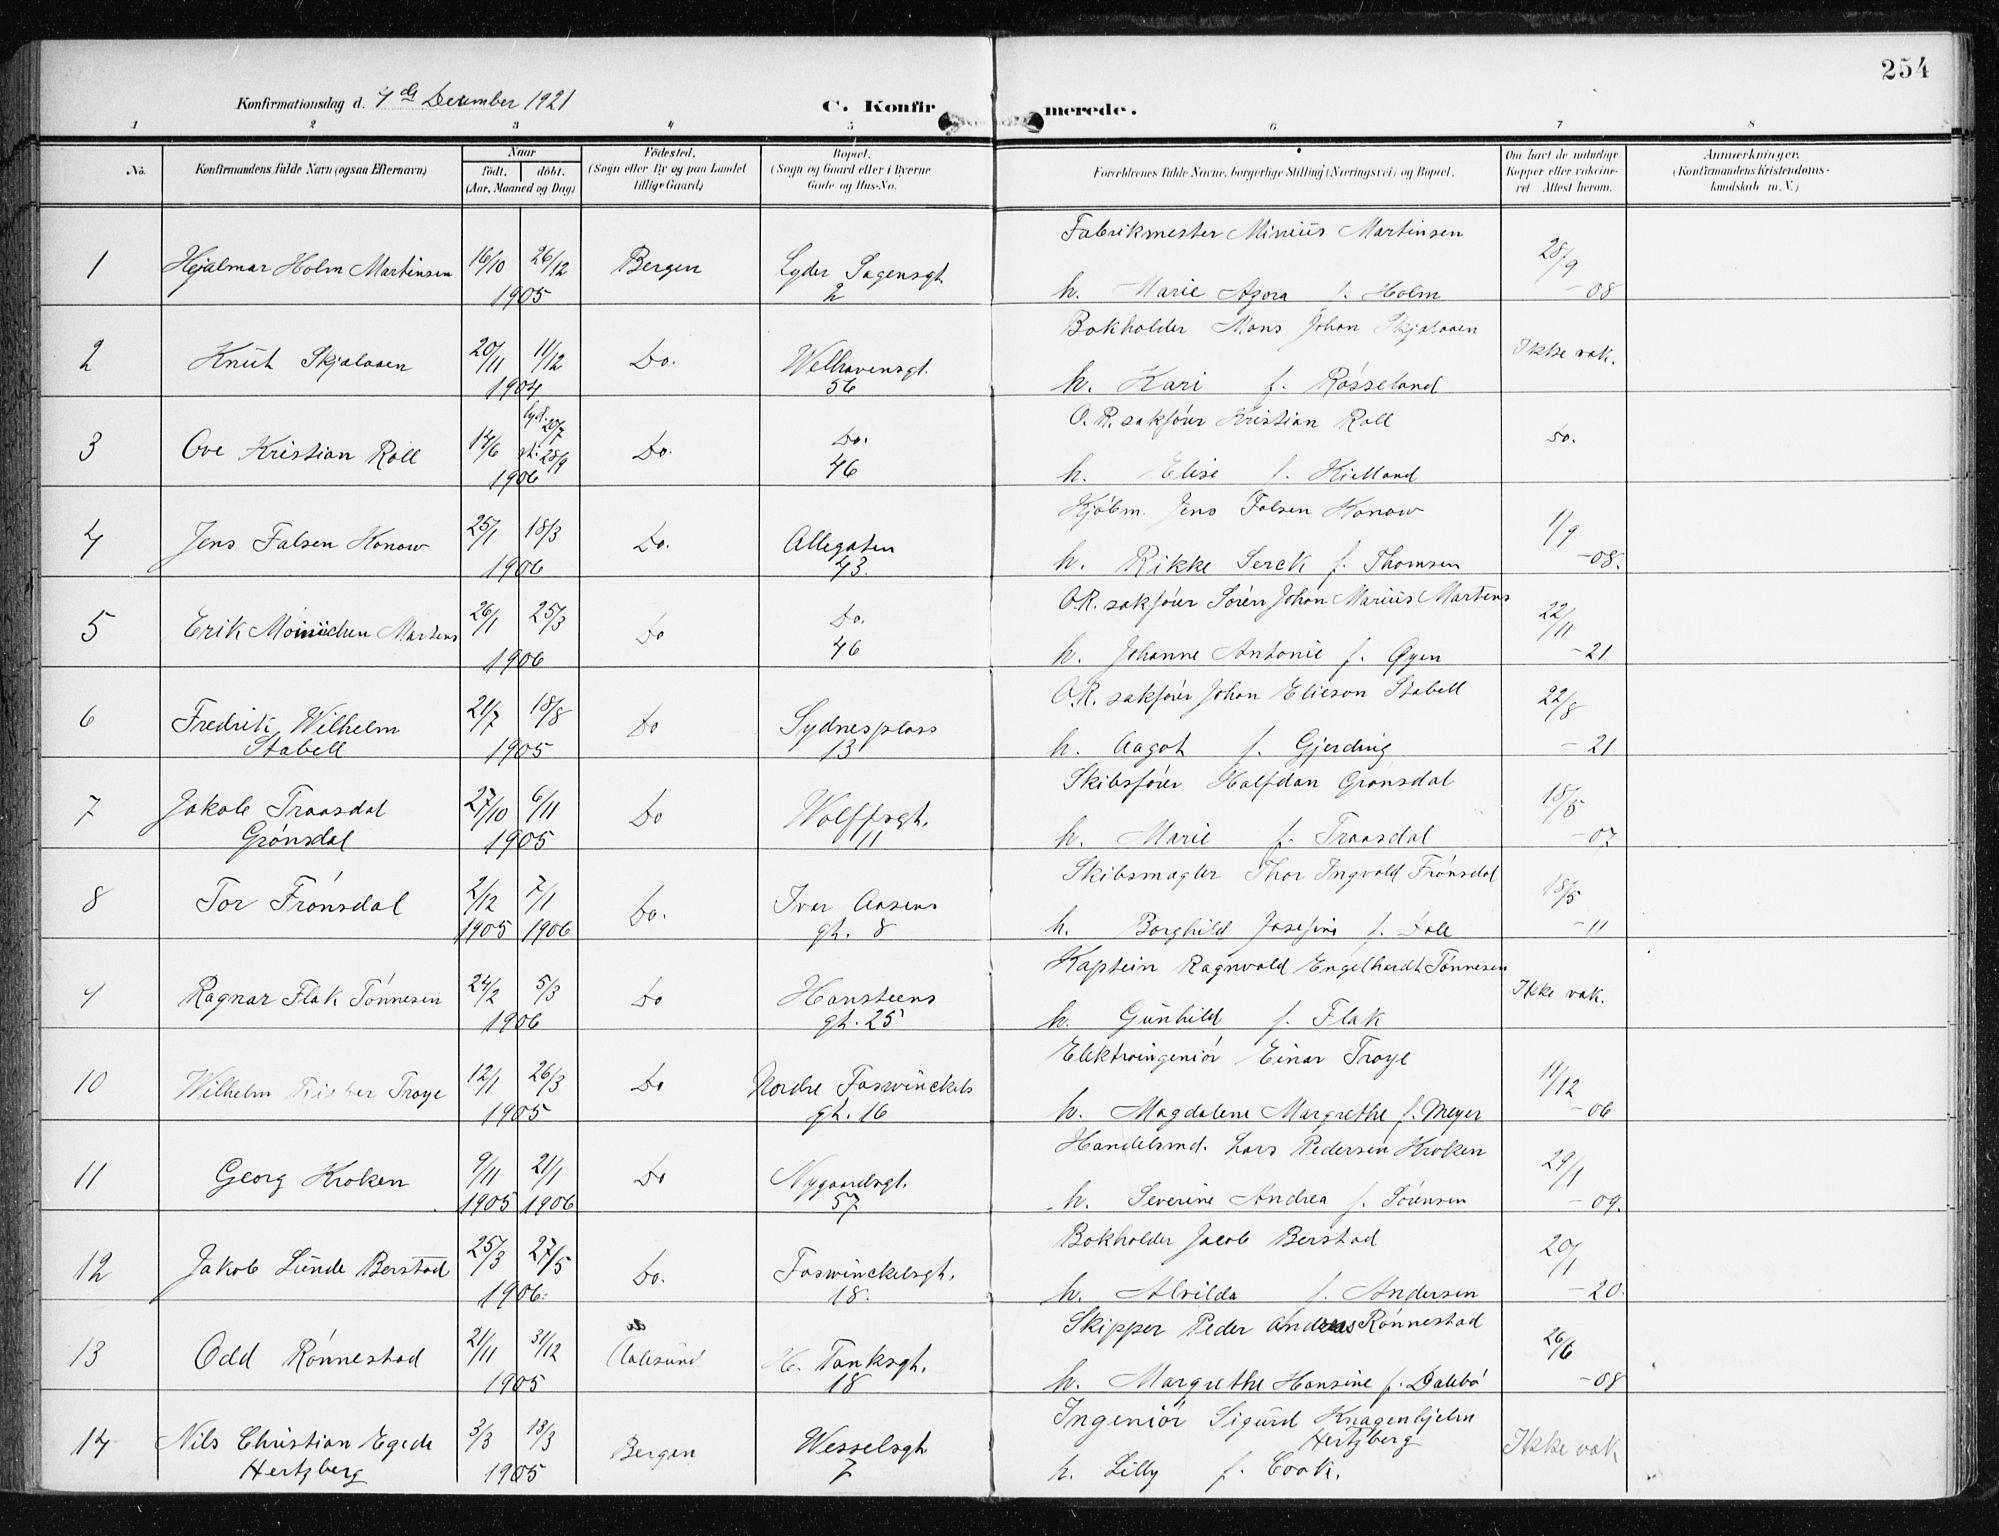 254
Konfirmationsdag d. 4de December 1921
C. Konfirmerede.
1 2 3 4 5 6 7 8
No. Konfirmandens fulde Navn (ogsaa Efternavn) Naar født. døbt. (Aar, Maaned og Dag) Fødested. (Sogn eller By og paa Landet tillige Gaard) Bopæl. (Sogn og Gaard eller i Byerne Gade og Hus-No. Forældrenes fulde Navne, borgerlige Stilling (Næringsvei) og Bopæl. Om havt de naturlige Kopper eller vaccineret Attest herom. Anmærkninger. (Konfirmandens Kristendomskundskab m. V.)
Fabrikmester Minius Martinsen
1 Hjalmar Holm Martinsen 16/10 26/12 Bergen Lyder Sagensgt. 28/9
1905 2 h. Marie Azora f. Holm -08
Bokholder Mons Johan Skjelaaen
2 Knut Skjelaaen 20/11 11/12 Do. Welhavensgt. Ikke vak.
1904 56 h. Kari f. Røsseland
O.R. sakfører Kristian Roll
3 Ove Kristian Roll 14/6 hjd. 20/7 st. 28/9 Do. Do. Do.
1906 46 h. Elise f. Kielland
Kjøbm. Jens Falsen Konow
4 Jens Falsen Konow 25/1 18/3 Do. Allegaten 1/9
1906 43. h. Rikke Serck f. Thomsen -08.
O.R. sakfører Søren Johan Marius Martens
5 Erik Møinichen Martens 26/1 25/3 Do Do. 22/11
1906 46 h. Johanne Antonie f. Øyen -21
O.R. sakfører Johan Elieson Stabell
6 Fredrik Wilhelm 21/7 18/8 Do Sydnesplass 22/8
Stabell 1905 13 h. Aagot f. Gjerding -21
Skibsfører Halfdan Grønsdal
7 Jakob Traasdal 27/10 6/11 Do Wolffsgt. 18/5
Grønsdal 1905 11 h. Marie f. Traasdal -07
Skibsmægler Thor Ingvald Frønsdal
8 Tor Frønsdal 2/12 7/1 Do. Ivar Aasens 18/5
1905 1906 gt. 8 h. Borghild Josefine f. Dale -11
Kaptein Ragnvald Engelhardt Tønnesen
9 Ragnar Flak Tønnesen 24/2 5/3 Do Hansteens Ikke vak.
1906 gt. 25 h. Gunhild f. Flak
Elektroingeniør Einar Troye
10 Wilhelm Rieber Troye 12/1 26/3 Do Nordre Foswinckels 11/12
1905 gt. 16 h. Magdalene Margrethe f. Meyer -06
Handelsmd. Lars Pedersen Kroken
11 Georg Kroken 9/11 21/1 Do Nygaardsgt. 29/1
1905 1906 57 h. Severine Andrea f. Sørensen -09.
Bokholder Jacob Berstad
12 Jakob Lunde Berstad 25/3 27/5 Do. Foswinckelsgt. 20/1
1906. 18. h. Alvilda f. Andersen -20.
Skipper Peder Andreas Rønnestad
13 Odd Rønnestad 21/11 31/12 Aalesund H. Tanksgt. 26/6
1905 18 h. Margrethe Hansine f. Dalebø -08
Ingeniør Sigurd Knagenhjelm
14 Nils Christian Egede 3/3 13/3 Bergen Wesselsgt Hertzberg Ikke vak.
Hertzberg 1905 7 h. Lilly f. Cook.